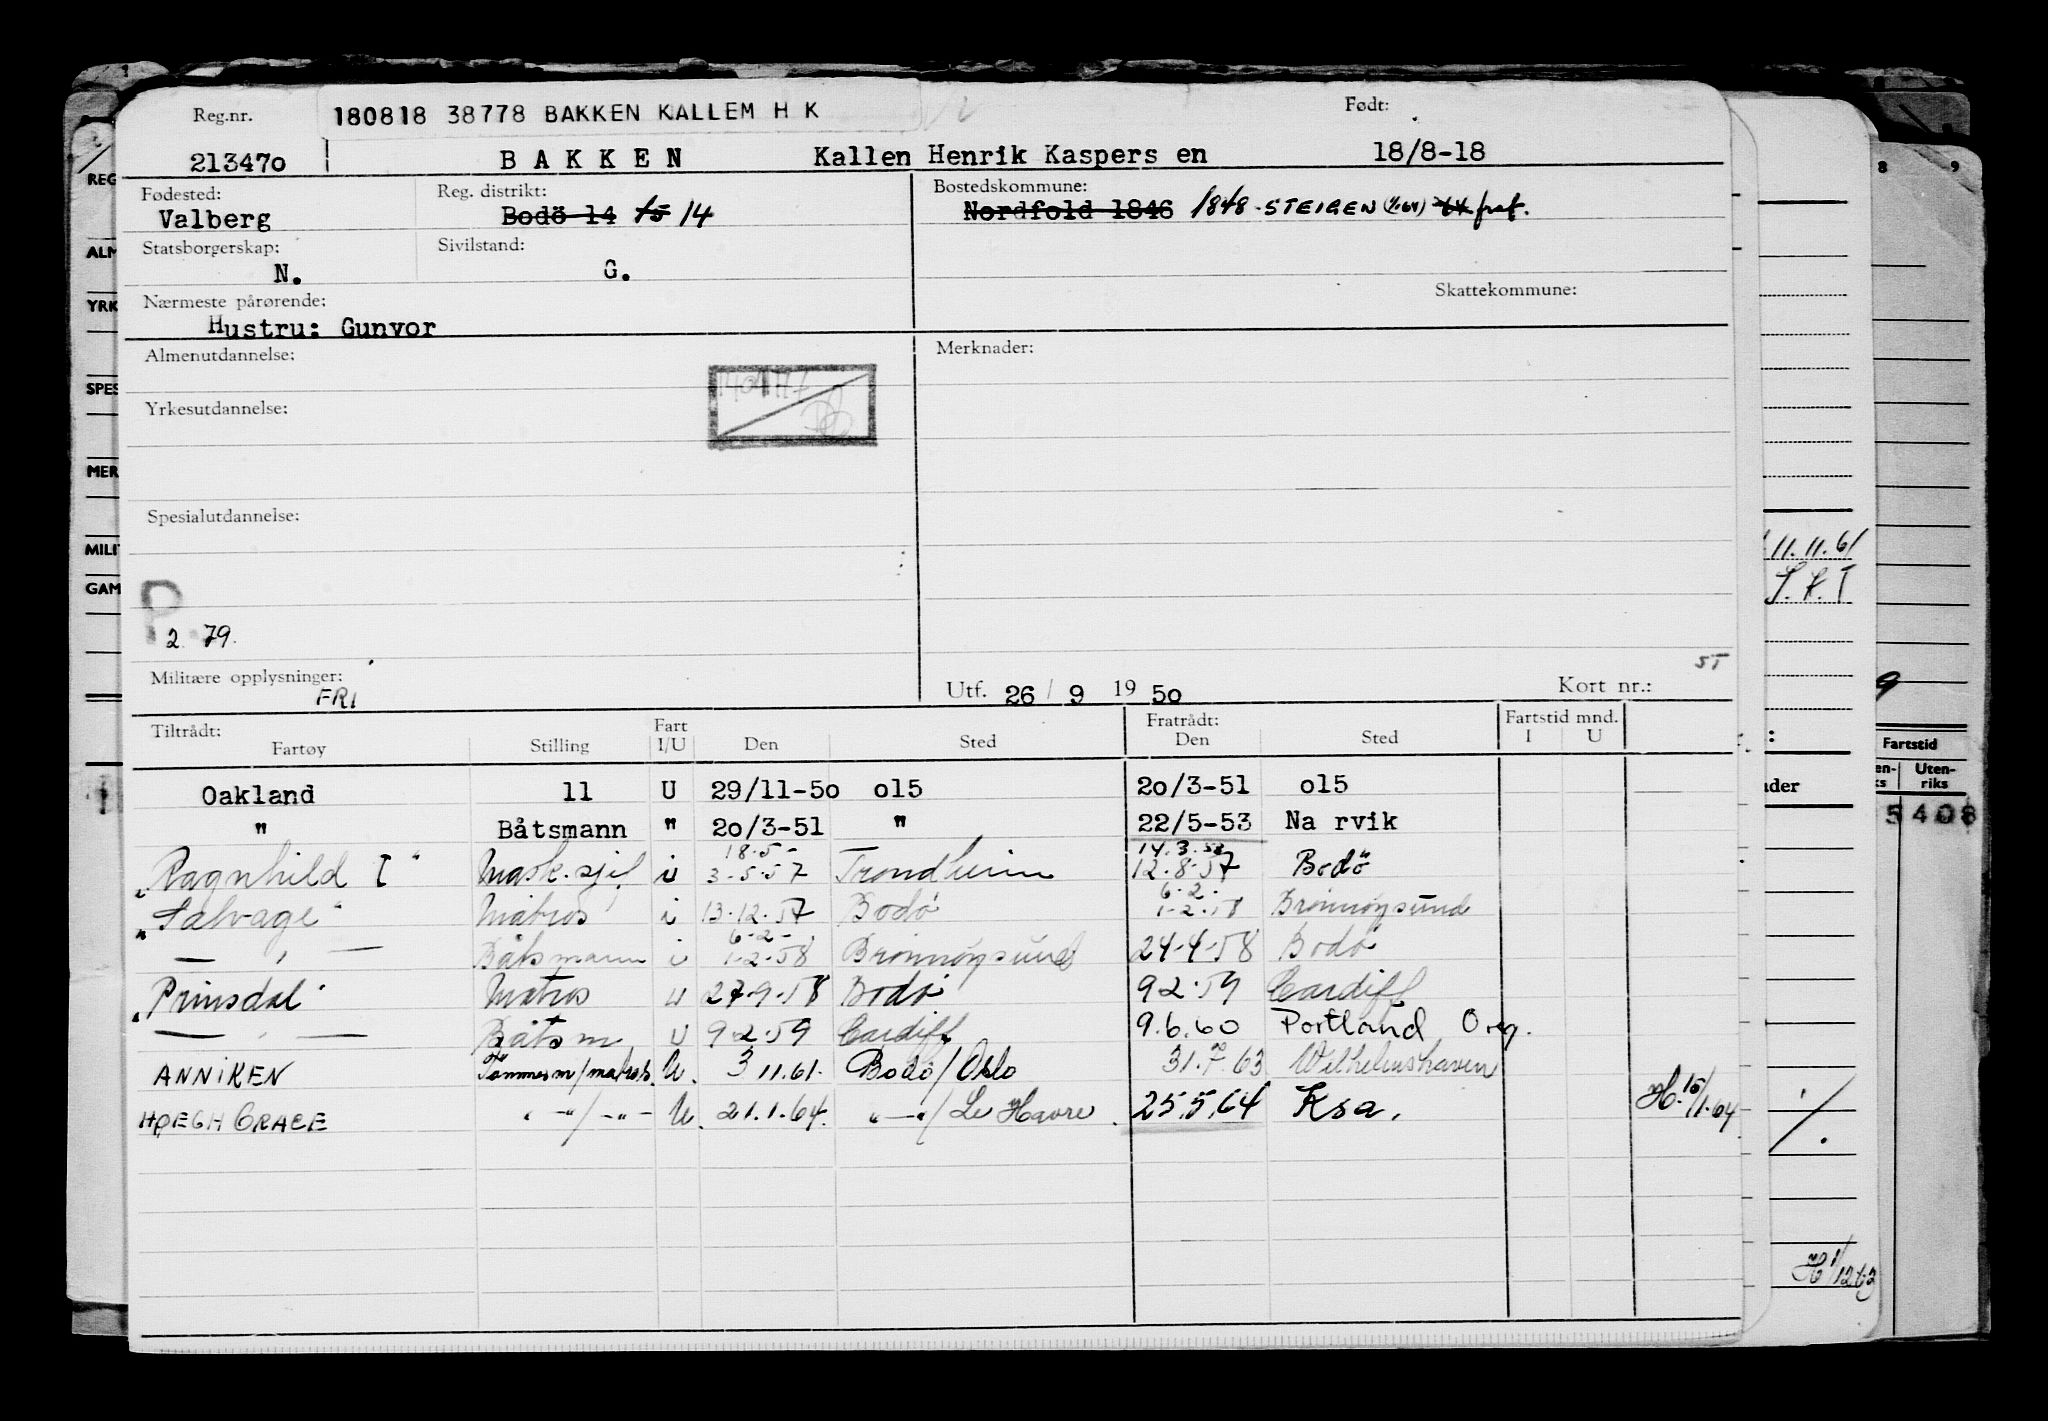 Reg.nr. 180818 38778 BAKKEN KALLEM H K Født:
213470 BAKKEN Kallen Henrik Kaspers en 18/8-18
Fødested: Reg. distrikt: Bostedskommune:
Valberg Bodö 14 15 14 Nordfold 1846 1848-STEIGEN (1.64) fraf.
Statsborgerskap: Sivilstand:
N. G.
Nærmeste pårørende: Skattekommune:
Hustru: Gunvor
Almenutdannelse: Merknader:
Yrkesutdannelse:
Spesialutdannelse:
P
2 79.
ST
Militære opplysninger: Utf. 26/9 1950 Kort nr.:
FRI
Tiltrådt: Fart Fratrådt: Fartstid mnd.
Fartøy Stilling I/U Den Sted Den Sted I U
Oakland 11 U 29/11-50 o15 20/3-51 o15
" Båtsmann " 20/3-51 " 22/5-53 Na rvik
18.5- 14.3.58
"Ragnhild I" Mask.sjef i 3-5-57 Trondheim 12.8-57 Bodö
6-2-
"Salvage" Matros i 13-12-57 Bodö 1-2-58 Brønnøysund
6-2-
— " — Båtsmann i 1-2-58 Brønnøysund 24-4-58 Bodö
"Prinsdal" Matros u 27-9-58 Bodö 9 2-59 Cardiff
— " — Båtsm u 9-2-59 Cardiff 9.6.60 Portland Oreg.
ANNIKEN Tömmerm/matros. U. 3 11.61. Bodö/Oslo 31.7.63 Wilhelmshaven
HØEGH GRACE " -"-/-"- U. 21.1.64. "—"/Le Havre. 25.5.64 Ksa. H.15/1.64
REG
ALM
YRK
SPES
MER
MILIT
GAM
8 9
11.11.61
S.K.T
9
:
Fartstid
Uten-
riks
5408
H 1/12 63